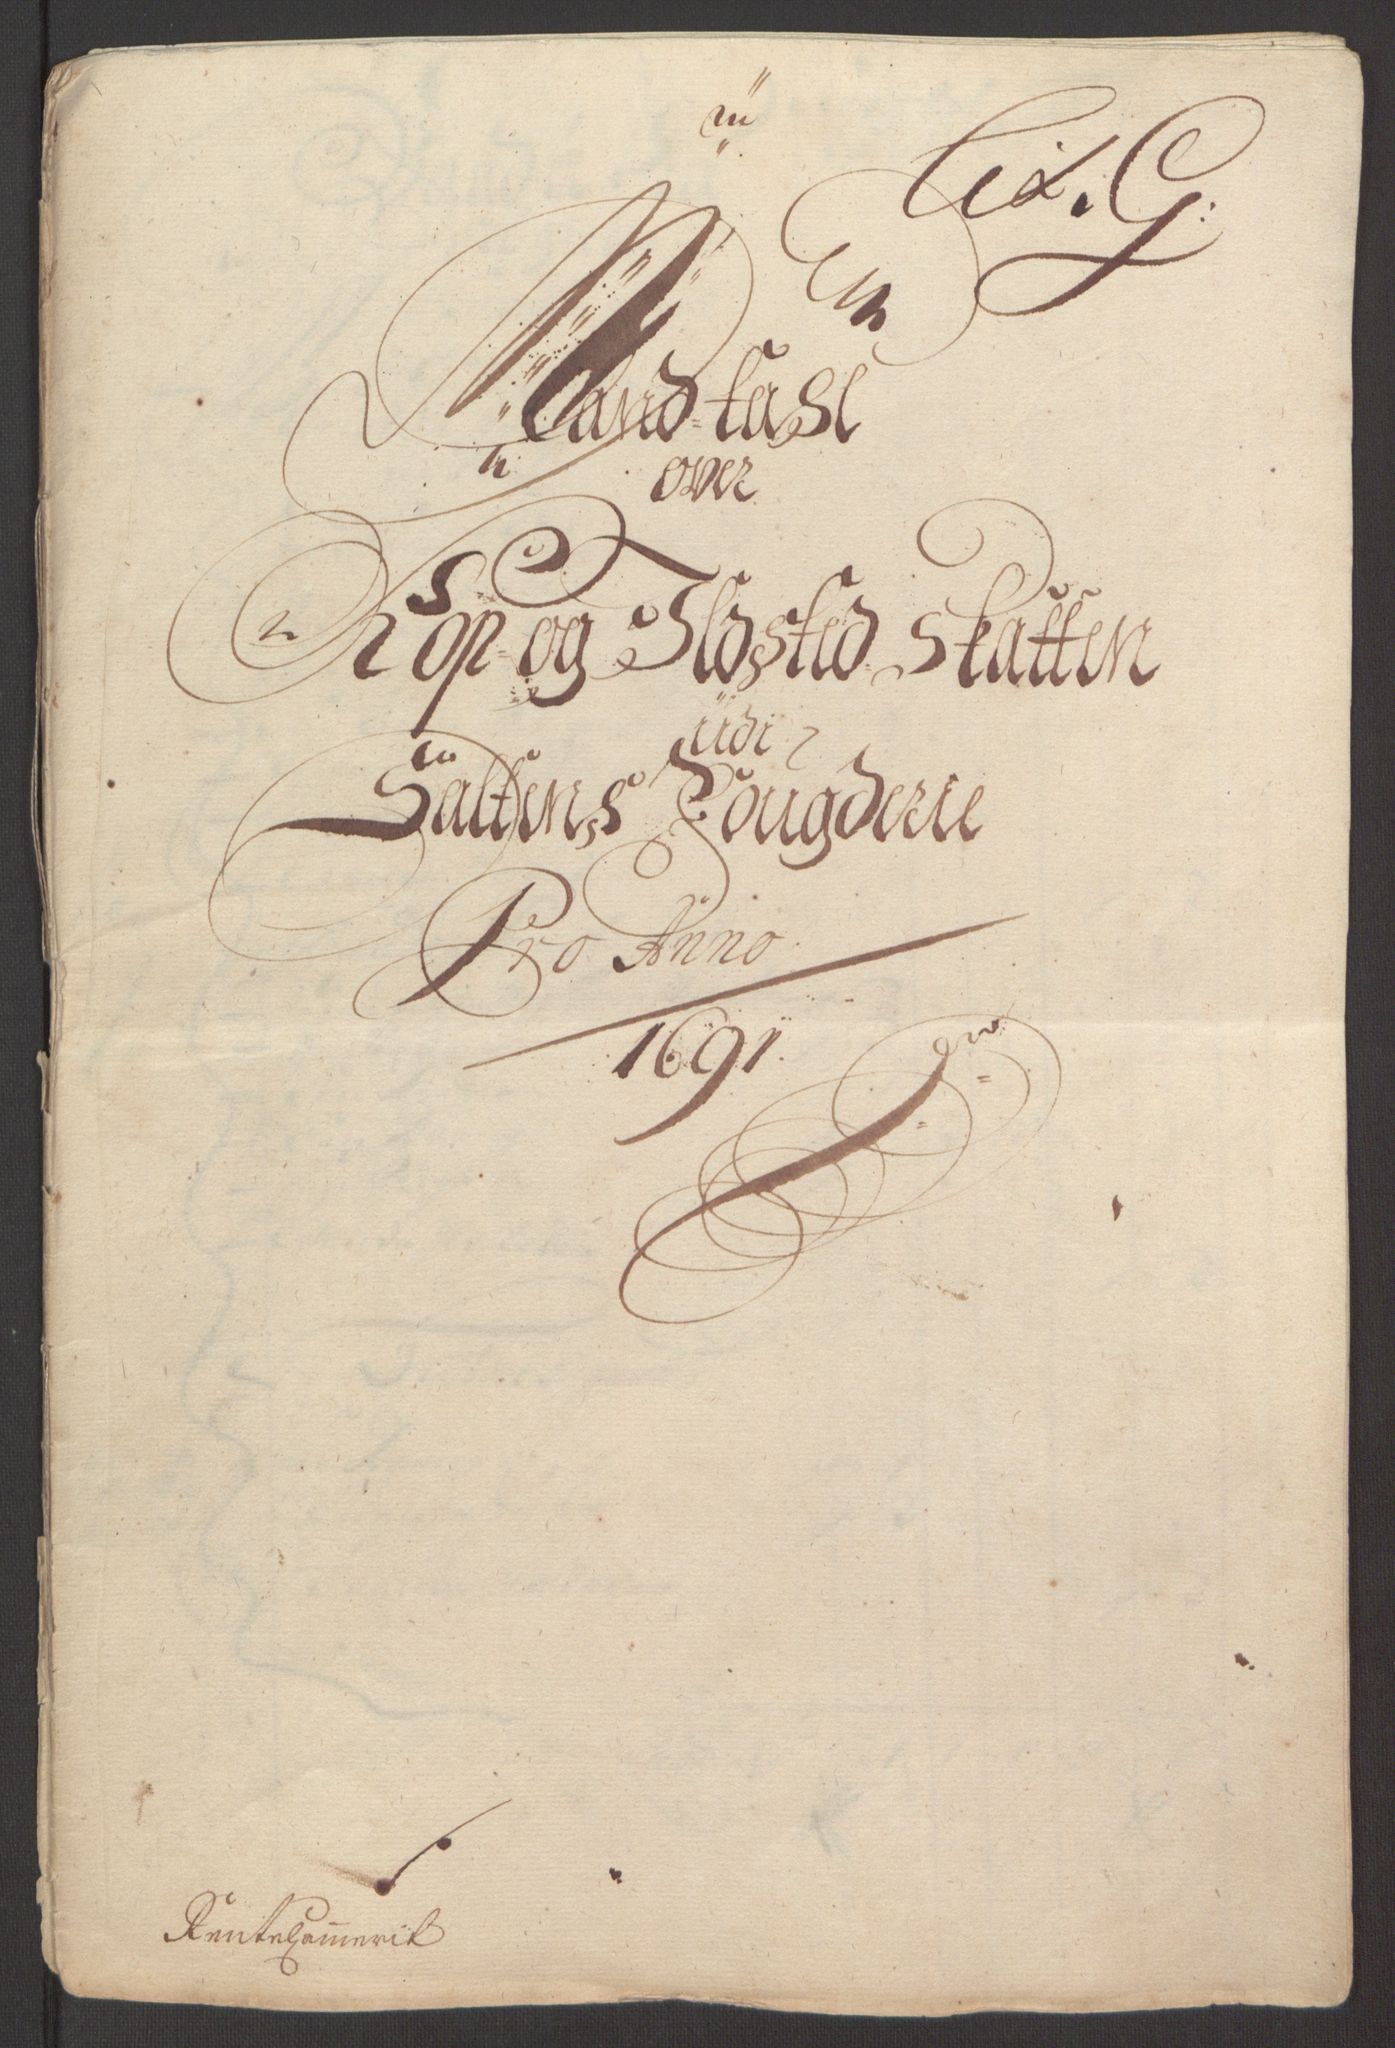 Lit. G:
Mandtall
over
Kop og Ildsted Skatten
udi
Saltens Fougderie
Pro Anno
1691
RenteCammerit